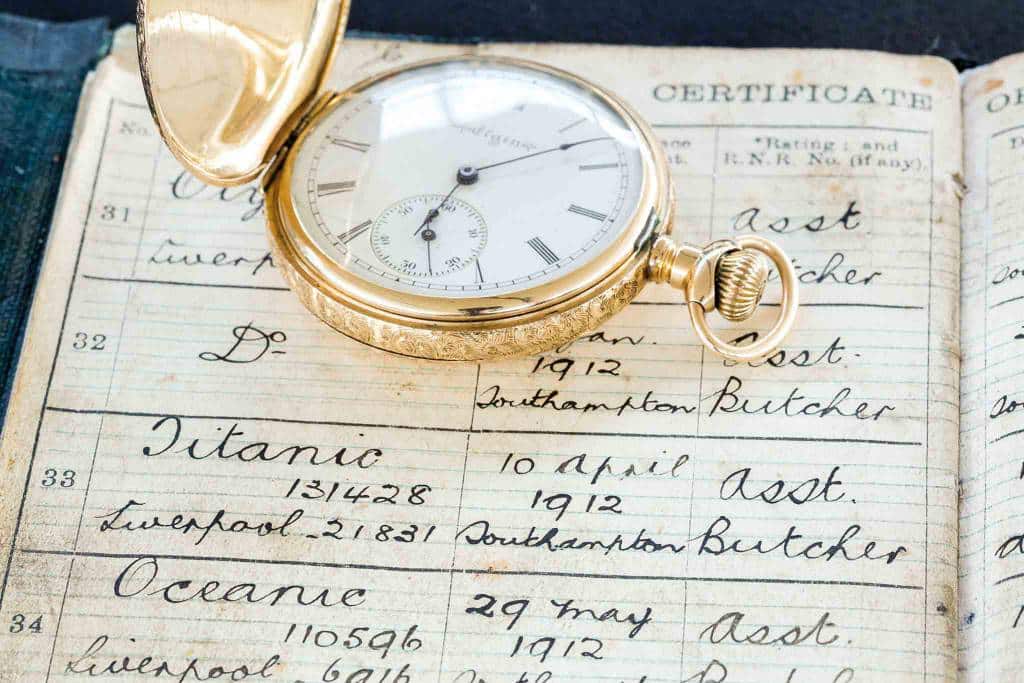 CERTIFICATE
No.
*Rating; and
R.N.R. No. (if any).
31
Asst
Liverp
cher
Elgin
60
10
20
30
32
Do.
an.
1912
Asst.
Southampton
Butcher
33
Titanic
131428
Liverpool - 21831
10 April
1912
Southampton
Asst.
Butcher
34
Oceanic
110596
Liverpool 6916
29 May
1912
Asst.